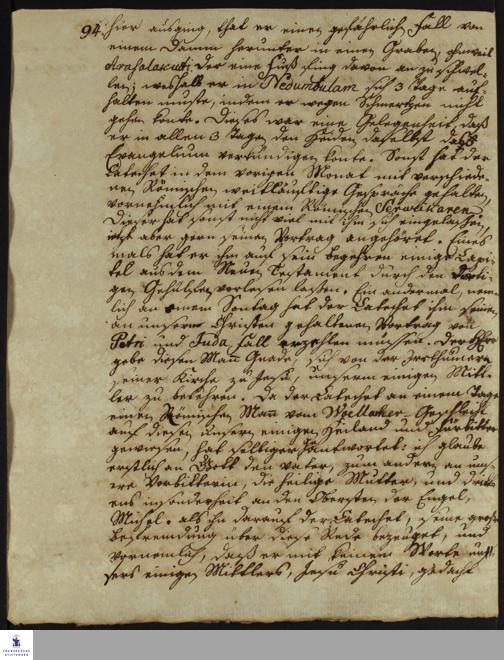 94. hier ausging, that er einen gefährlichen Fall von
einem Damm herunter in einen Graben, ohnweit
Arasalakudi. Der eine Fuß fing davon an zu schwel-
len; weshalb er in Nedumbulam sich 3 Tage auf-
halten muste, indem er wegen Schmertzen nicht
gehen konte. Dieses war eine Gelegenheit, daß
er in allen 3 Tagen den Heiden daselbst das
Evangelium verkündigen konte. Sonst hat der
Catechet in dem vorigen Monat mit verschiede-
nen Römischen weitläuftige Gespräche gehalten,
vornehmlich mit einem Römischen Serwikaren.
Dieser hat sonst nicht viel mit ihm sich eingelassen,
jetzt aber gern seinen Vortrag angehöret. Eines
mals hat er ihm auf sein begehren einige Capi-
tel aus dem Neuen Testament durch den
gen Gehülfen vorlesen lassen. Ein andermal, nem-
lich an einem Sontag hat der Catechet ihm seinen
an unsere Christen gehaltenen Vortrag von
Petri und Juda Fall erzehlen müssen. Der HErr
gebe diesem Mann Gnade, sich von den Irrthümern
seiner Kirche zu JEsu, unserm einigen Mitt-
ler zu bekehren. Da der Catechet an einem Tage
einen Römischen Mann vom Wellaler Geschlecht
auf diesen unsern einigen Heiland und Fürbitter
gewiesen, hat selbiger geantwortet: ich glaube
erstlich an Gott den Vater, zum andern an uns-
ere Vorbitterin, die heilige Mutter, und dritt-
ens insonderheit an den Obersten der Engel,
Michel. Als ihm darauf der Catechet, seine große
Befremdung über diese Rede bezeuget, und
vornemlich, daß er mit keinem Worte uns-
sers einigen Mittlers, Jesu Christi, gedacht
FRANCKESCHE
STIFTUNGEN